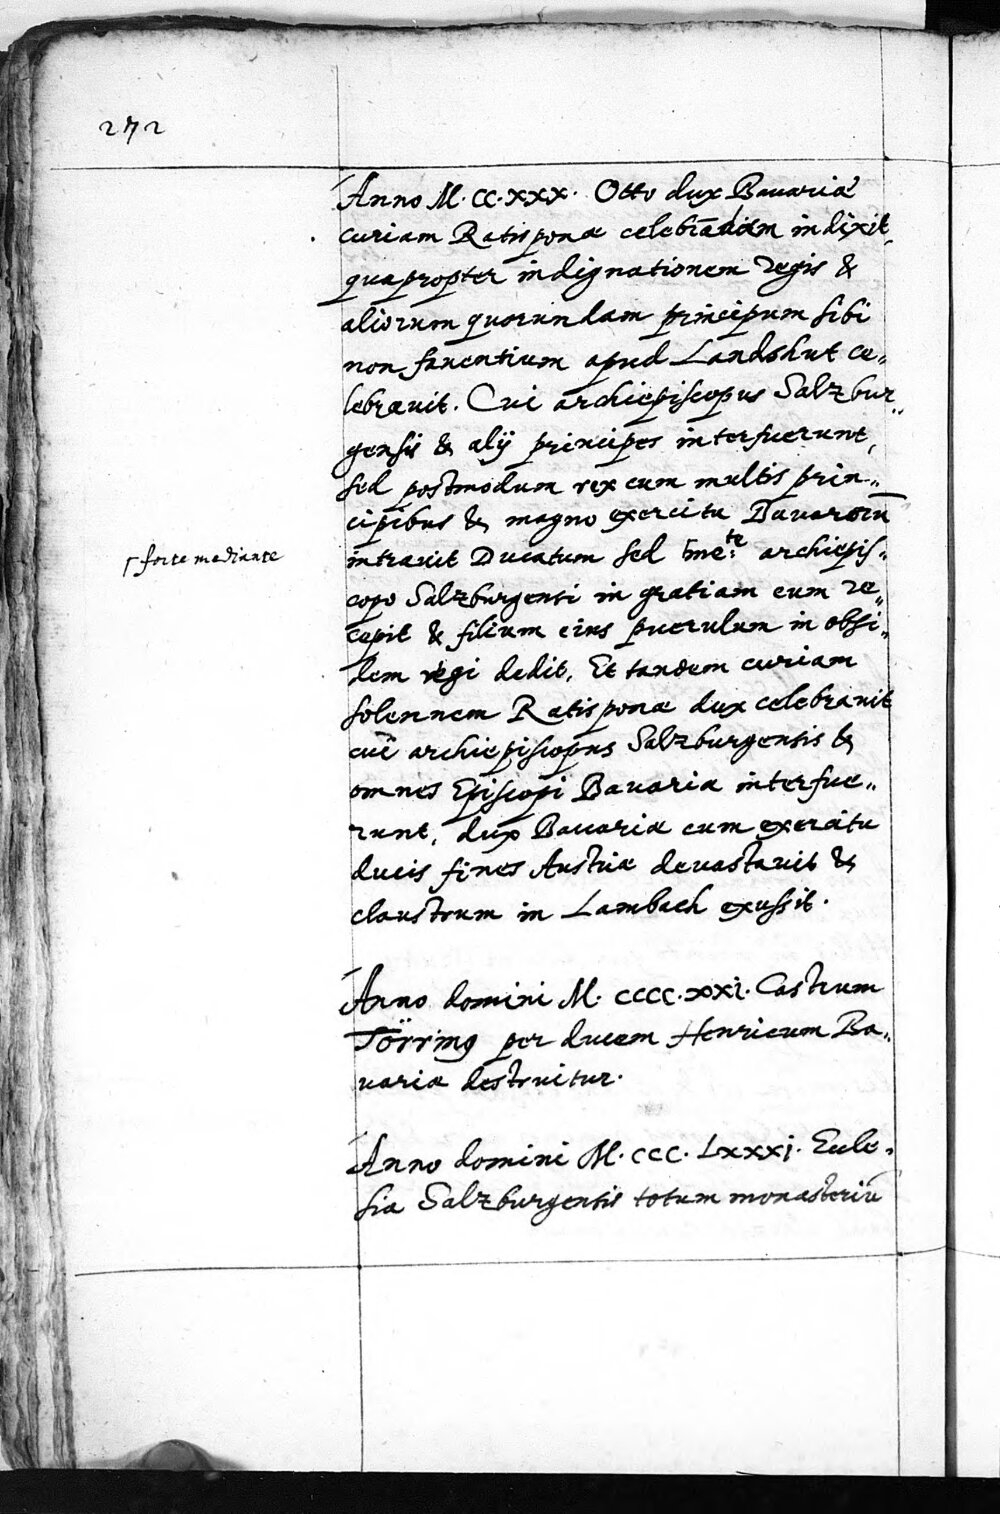 272
Anno M. CC. XXX. Otto dux Bauariæ
curiam Ratisponæ celebrādam indixit,
quapropter indignationem regis &
aliorum quorundam principum sibi
non fauentium apud Landshut ce„
lebrauit. Cui archiepiscopus Salzbur„
gensis & alij principes interfuerunt,
sed postmodum rex cum multis prin„
cipibus & magno exercitu Bauarorū
intrauit Ducatum sed ⌈me:te archiepis„
⌈ forte mediante
copo Salzburgensi in gratiam eum re„
cepit & filium eius puerulum in obsi„
dem regi dedit, Et tandem curiam
solennem Ratisponæ dux celebrauit
cui archiepiscopus Salzburgensis &
omnes Episcopi Bauariæ interfue„
runt, dux Bauariæ cum exercitu
ducis fines Austriæ deuastauit &
claustrum in Lambach exussit.
Anno domini M. CCCC. XXI. Castrum
Törring per ducem Henricum Ba„
uariæ destruitur.
Anno domini M. CCC. LXXXI. Eccle„
sia Salzburgensis totum monasteriū